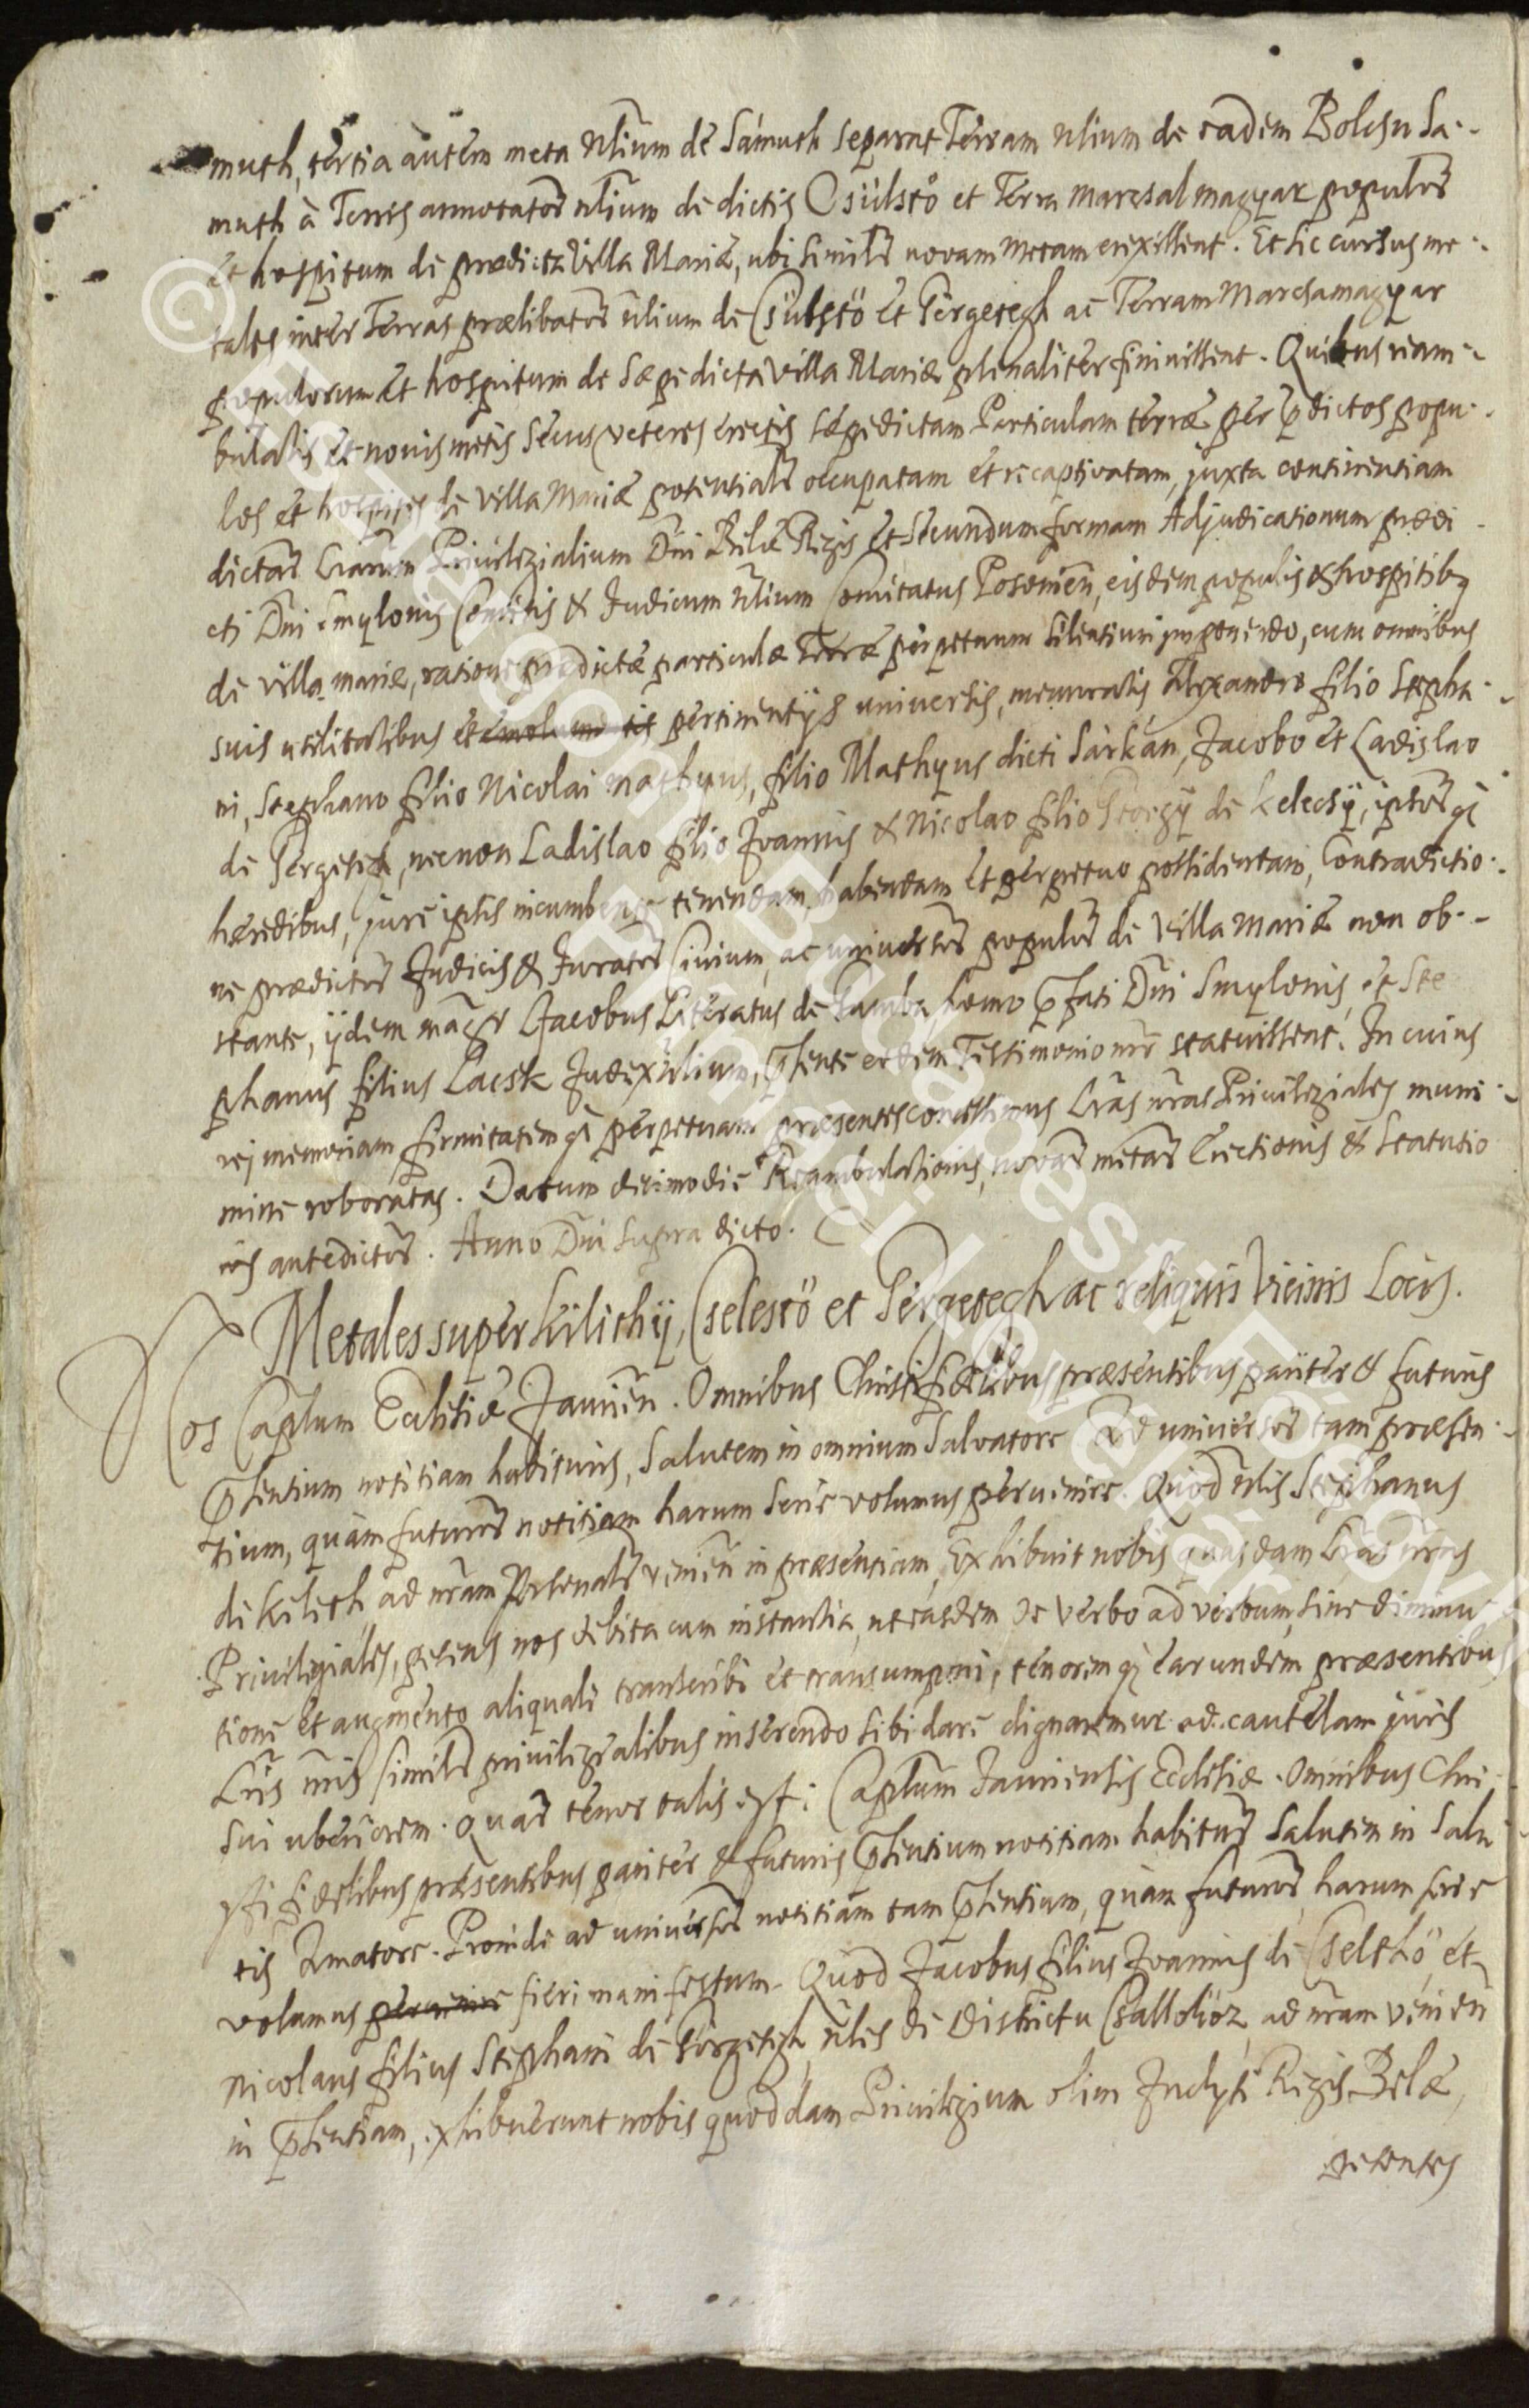 muth, tertia autem meta nlium de Sámuth separat Terram nlium de eadem Bolchu Sa-
muth à Terris annotatos nlium de dictis Csülstö et Terra Marchalmagyar populos
et hospitum de prædicta Villa Mariæ, ubi similr novam metam erexissent. Et sic cursus me-
tales inter Terras prælibatos nlium de Csülstö et Pergetegh ac Terram Marchamagyar
populorum et hospitum de sæpedicta Villa Mariæ plenaliter finivissent. Quibus ream-
bulatis et novis metis secus veteres erectis sæpedictam Particulam terræ per pdictos popu-
los et hospites de Villa Mariæ potentialr occupatam et recaptivatam, juxta continentiam
dictas Lrarum Privilegialium Dni Bélæ Regis et secundum formam Adjudicationum prædi-
cti Dni Smylonis Comitis & Judicum nlium Comitatus Posonien, eisdem populis & hospitibq
de Villa mariæ, ratione prædictæ particulæ Terræ perpetuum silentium imponendo, cum omnibus
suis utilitatibus et pertinentijs universis, memoratis Alexandro filio Stepha-
ni, Stephano filio Nicolai Mathyus, filio Mathyus dicti Sárkán, Jacobo et Ladislao
de Pergetegh, necnon Ladislao filio Joannis & Nicolao filio Georgÿ de Kelecsÿ, iptos q
hæredibus, jure iptis incumbenti tenendam, habendam et perpetuo possidentam, Contradictio-
ne prædictos Judicis & Juratos Civium, ac universos populos de Villa Mariæ non ob-
stante, ijdem magr Jacobus Literatus de homo pfati Dni Smylonis et Ste
phanus filius Lacsk Judex nlium, psente eodem Testimonio nro statuissent. In cuius
rej memoriam firmitatemq perpetuam præsentes concessimus Lras nras Privilegiales muni-
mine roboratas. Datum decimo die Reambulationis, novas metas Erectionis & Statutio
nis antedictos. Anno Dni supra dicto.
Metales super Kilichÿ, Cselestö et Pergetegh ac reliquis Vicinis Locis.
Nos Caplum Ecclesiæ Jaurien. Omnibus Christi fidelibus præsentibus pariter & futuris
psentium notitiam habituris, Salutem in omnium Salvatore Ad universos tam præsen-
tium, quàm futuros notitiam harum serie volumus pervenire. Quod nlis Stephanus
de Kilith ad nram Personalr venien in præsentiam, Exhibuit nobis quasdam Lras nras
Privilegiales, petens nos debita cum instantia, ut easdem de verbo ad verbum, sine diminu-
tione et augmento aliquali transcribi et transumpmi, tenoremq earundem præsentibus
Lris nris similr privilegialibus inserendo sibi dare dignaremur ad cautelam juris
sui uberiorem. Quas tenor talis est: Caplum Jauriensis Ecclesiæ. Omnibus Chri-
sti fidelibus præsentibus pariter & futuris psentium notitiam habituris Salutem in Salu
tis Amatore. Proinde ad universos notitiam tam psentium, quàm futuros, harum serie
volumus pervenire fieri manifestum. Quod Jacobus filius Joannis de Cselthö et
Nicolaus filius Stephani de Pörgetegh nles de Districtu Csallokoz ad nram venien
in psentiam, exhibuerunt nobis quoddam Privilegium olim Inclyti Regis Belæ,
petentes
© Budapest Főváros Levéltára